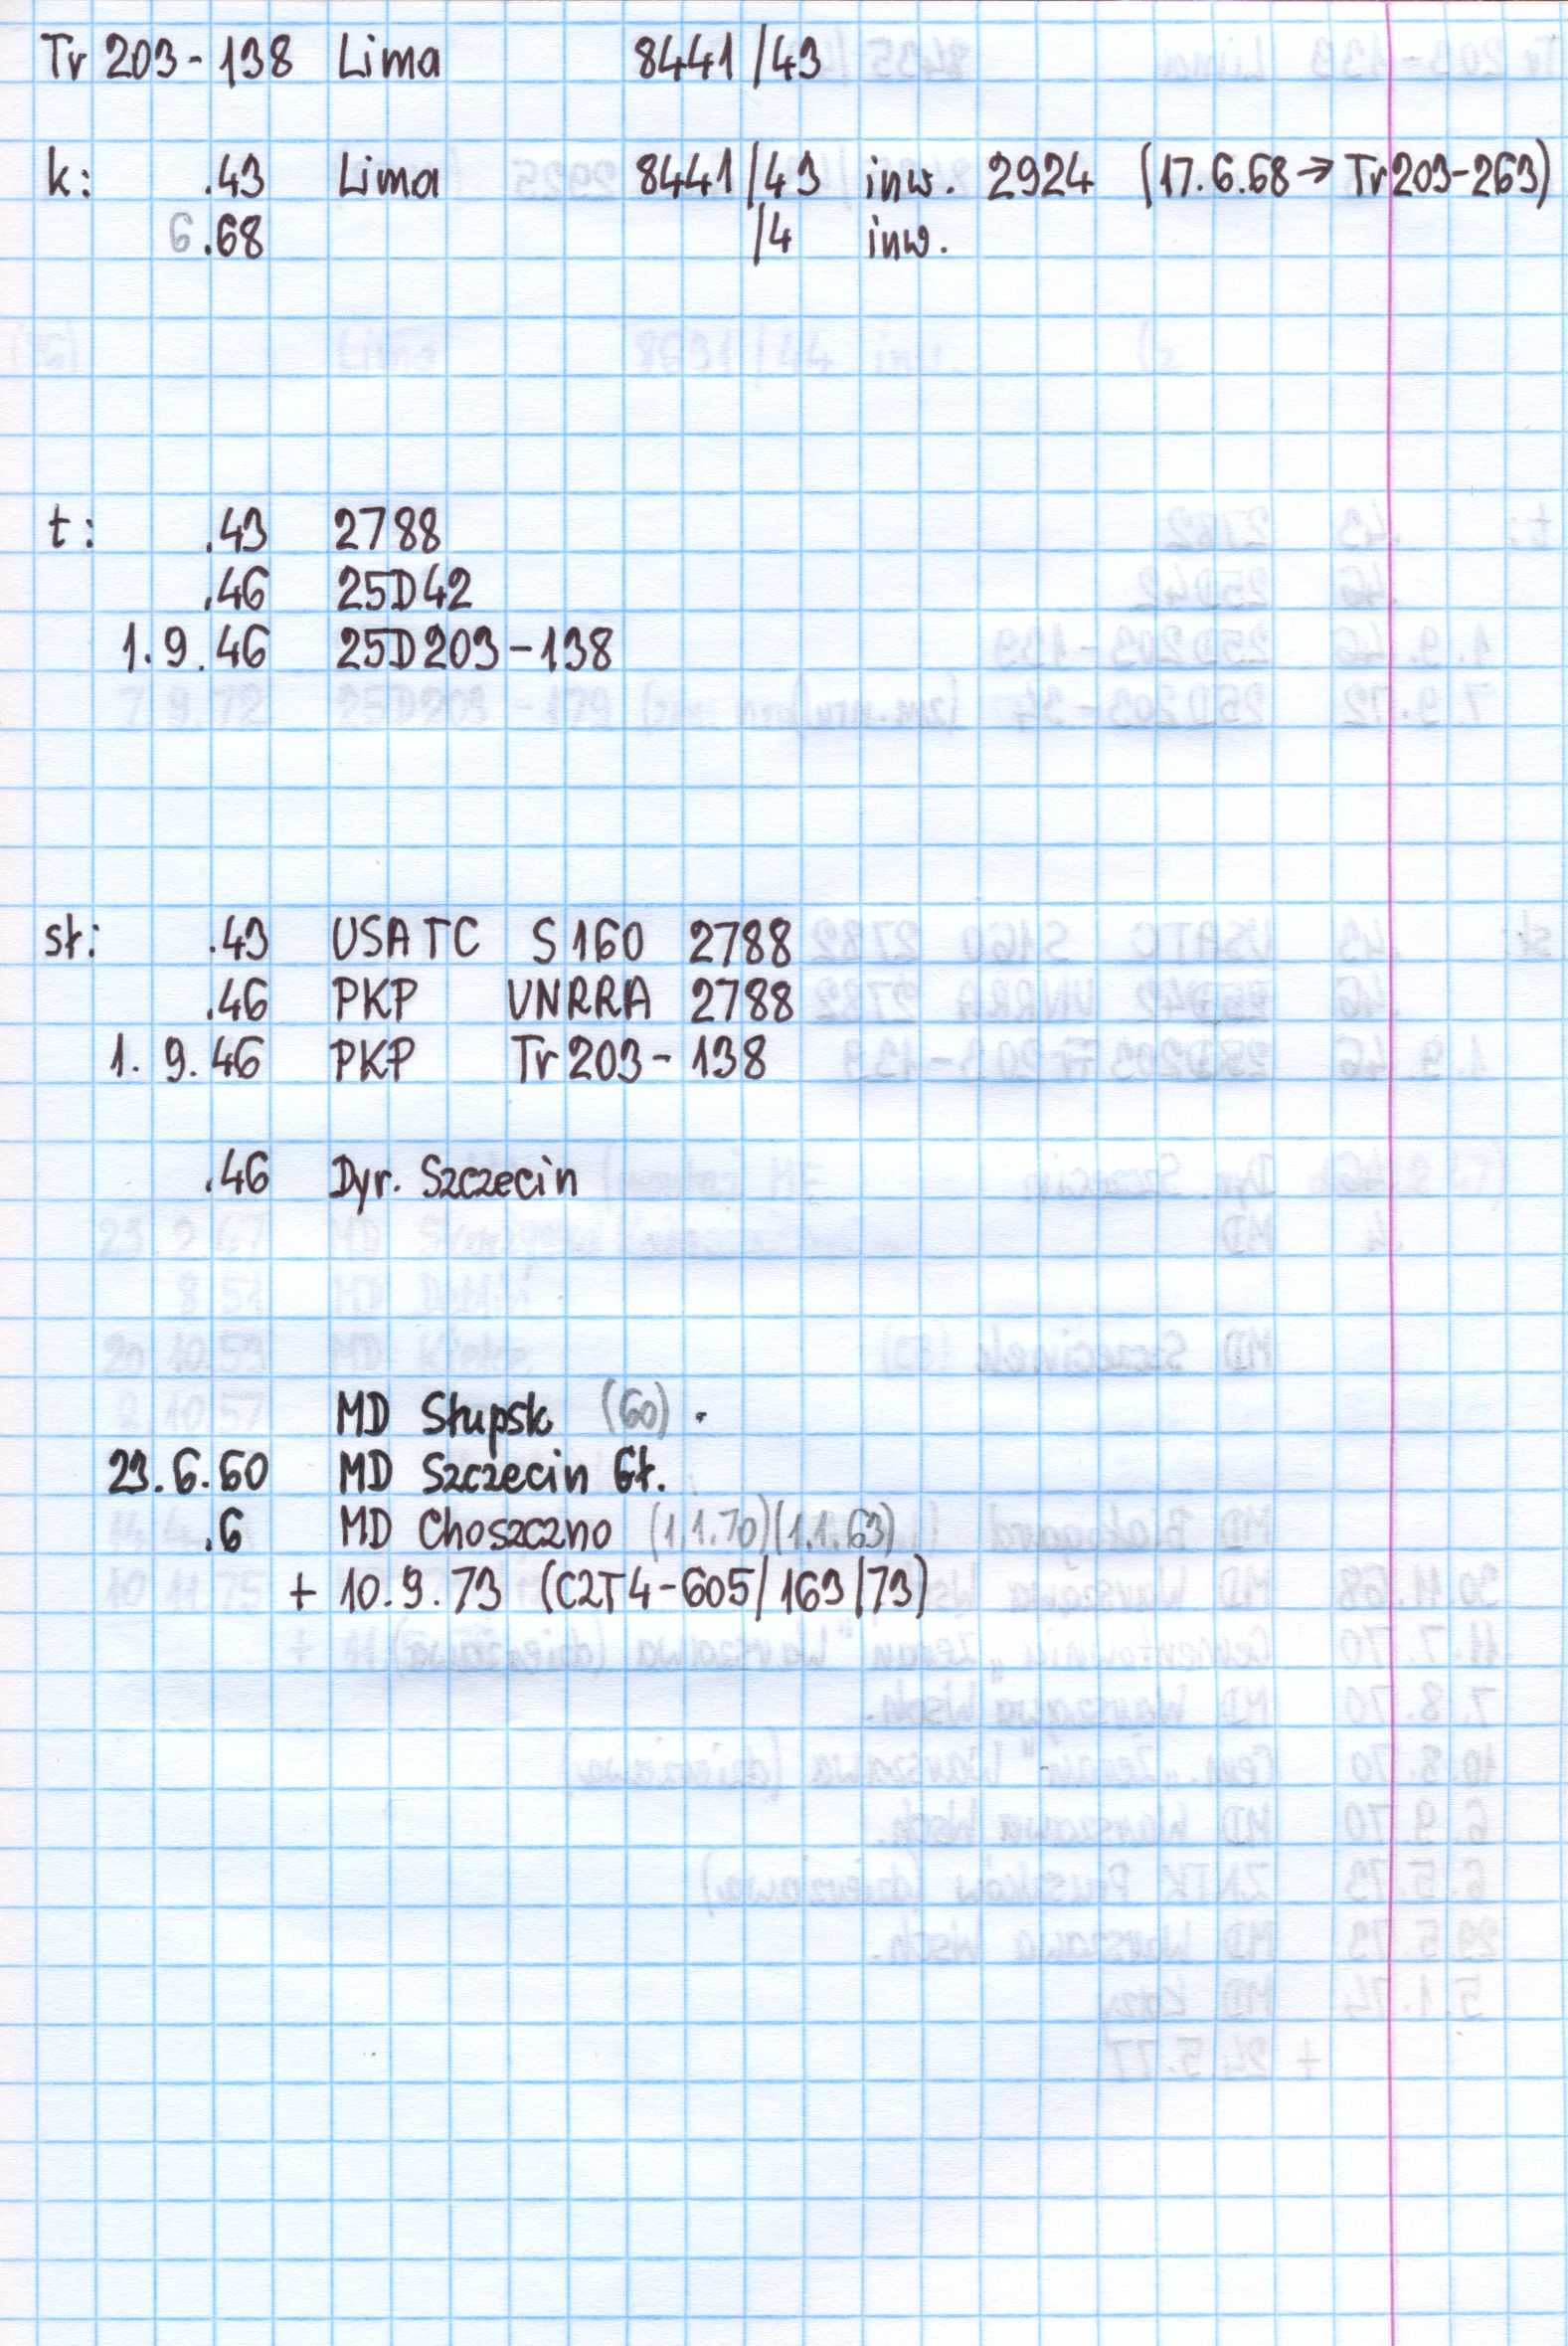 Tr 203-138 Lima 8441/43
k: .43 Lima 8441/43 inw. 2924 (17.6.68→Tr203-263)
6.68 /4 inw.
t: .43 2788
.46 25D42
1.9.46 25D203-138
sł: .43 USATC S160 2788
.46 PKP UNRRA 2788
1.9.46 PKP Tr203-138
.46 Dyr. Szczecin
MD Słupsk (60) .
23.6.60 MD Szczecin Gł.
.6 MD Choszczno (1.1.70)(1.1.63)
+ 10.9.73 (C2T4-605/163/73)